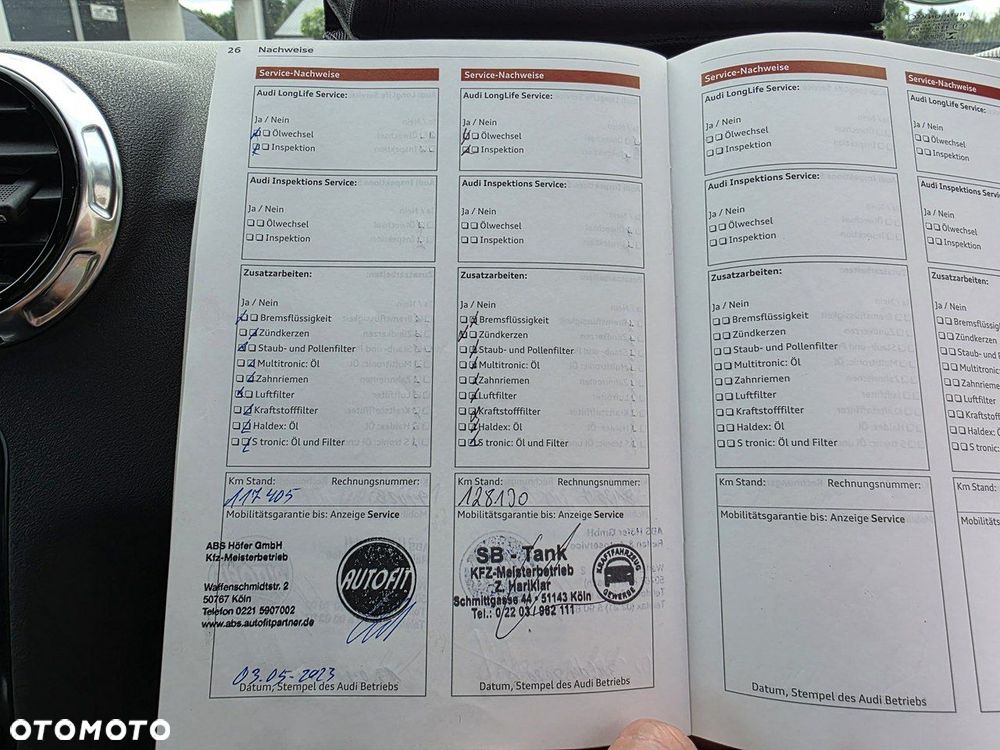 26 Nachweise
Service-Nachweise
Audi LongLife Service:
Ja / Nein
Ölwechsel
Inspektion
Audi Inspektions Service:
Ja / Nein
Ölwechsel
Inspektion
Zusatzarbeiten:
Ja / Nein
Bremsflüssigkeit
Zündkerzen
Staub- und Pollenfilter
Multitronic: Öl
Zahnriemen
Luftfilter
Kraftstofffilter
Haldex: Öl
S tronic: Öl und Filter
Km Stand: Rechnungsnummer:
117405
Mobilitätsgarantie bis: Anzeige Service
ABS Höfer GmbH
Kfz-Meisterbetrieb
Waffenschmidtstr. 2
50767 Köln
Telefon 0221 5907002
www.abs.autofitpartner.de
AUTOFIT
03.05-2023
Datum, Stempel des Audi Betriebs
Service-Nachweise
Audi LongLife Service:
Ja / Nein
Ölwechsel
Inspektion
Audi Inspektions Service:
Ja / Nein
Ölwechsel
Inspektion
Zusatzarbeiten:
Ja / Nein
Bremsflüssigkeit
Zündkerzen
Staub- und Pollenfilter
Multitronic: Öl
Zahnriemen
Luftfilter
Kraftstofffilter
Haldex: Öl
S tronic: Öl und Filter
Km Stand: Rechnungsnummer:
128190
Mobilitätsgarantie bis: Anzeige Service
SB - Tank
KFZ-Meisterbetrieb
Z. Hariklar
Schmittgasse 44 · 51143 Köln
Tel.: 0 22 03 / 982 111
KRAFTFAHRZEUG
GEWERBE
Datum, Stempel des Audi Betriebs
Service-Nachweise
Audi LongLife Service:
Ja / Nein
Ölwechsel
Inspektion
Audi Inspektions Service:
Ja / Nein
Ölwechsel
Inspektion
Zusatzarbeiten:
Ja / Nein
Bremsflüssigkeit
Zündkerzen
Staub- und Pollenfilter
Multitronic: Öl
Zahnriemen
Luftfilter
Kraftstofffilter
Haldex: Öl
S tronic: Öl und Filter
Km Stand: Rechnungsnummer:
Mobilitätsgarantie bis: Anzeige Service
Datum, Stempel des Audi Betriebs
Service-Nachweise
Audi LongLife Service:
Ja / Nein
Ölwechsel
Inspektion
Audi Inspektions Service:
Ja / Nein
Ölwechsel
Inspektion
Zusatzarbeiten:
Ja / Nein
Bremsflüssig
Zündkerzen
Staub- und P
Multitronic:
Zahnriemen
Luftfilter
Kraftstofff
Haldex: Öl
S tronic: Öl
Km Stand:
Mobilitäts
OTOMOTO